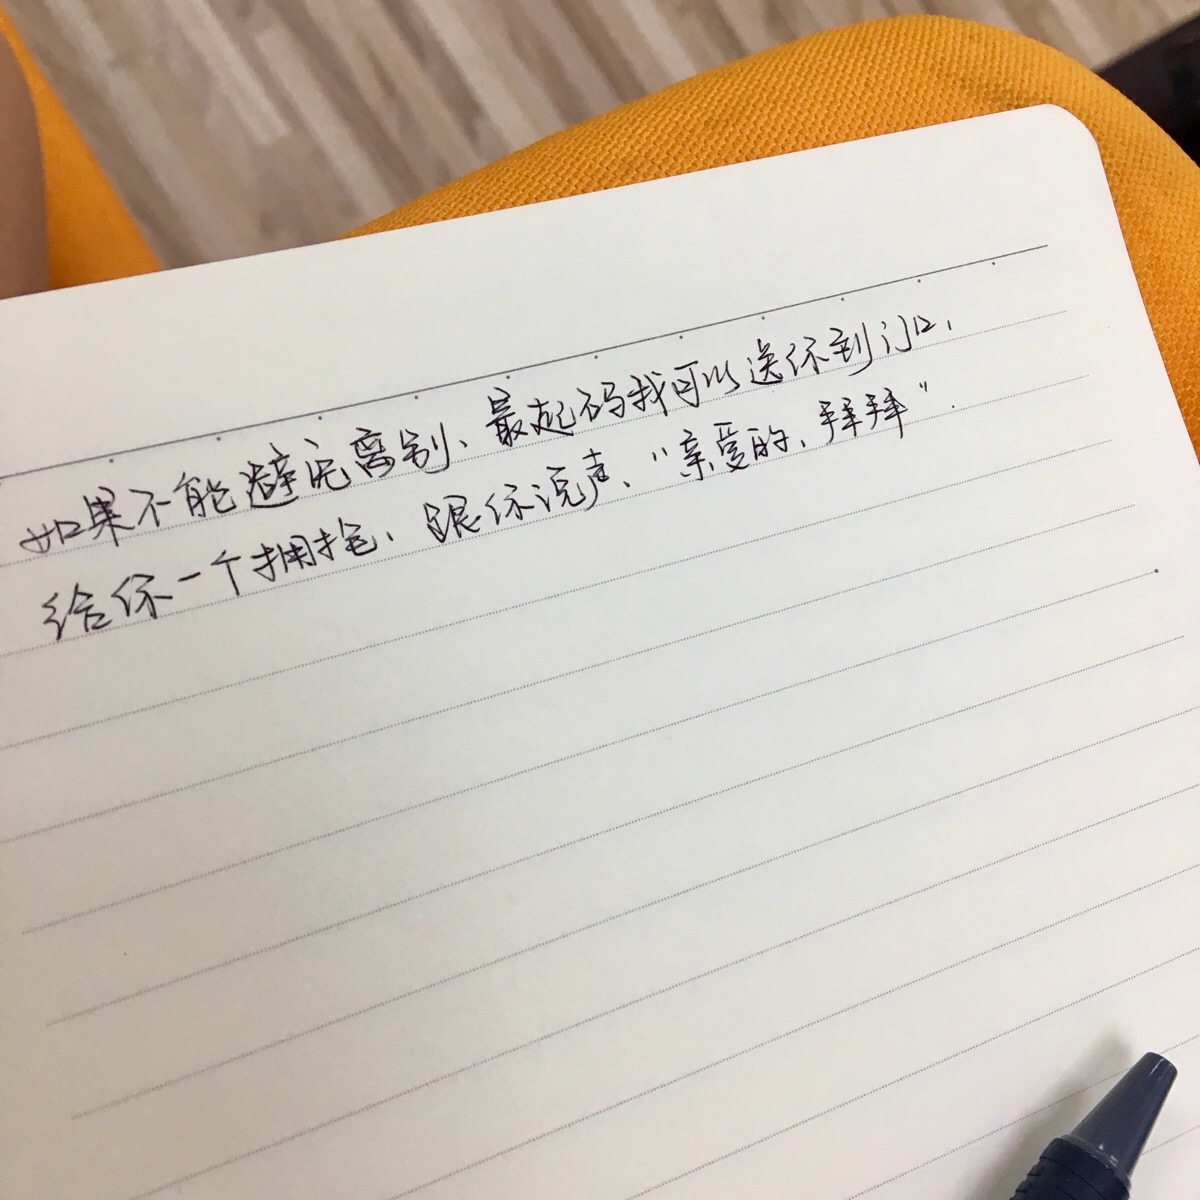 如果不能避免离别、最起码我可以送你到门口，
给你一个拥抱、跟你说声、“亲爱的、拜拜”.